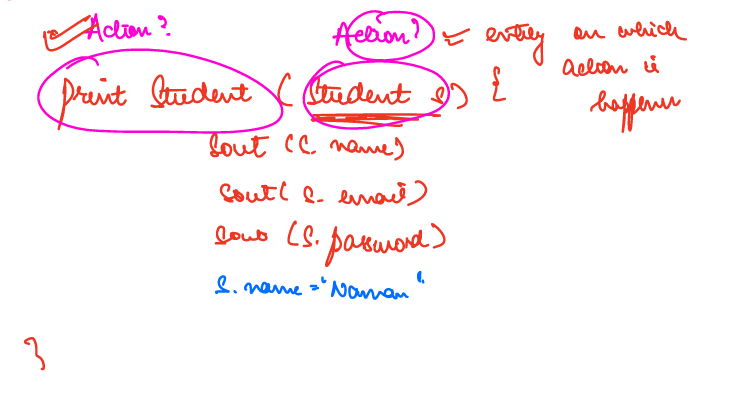 Action? Action? entity on which
action is
happening
print Student (Student s) {
Sout (S. name)
Sout( S. email)
Sout (S. password)
S. name = "Naman".
}